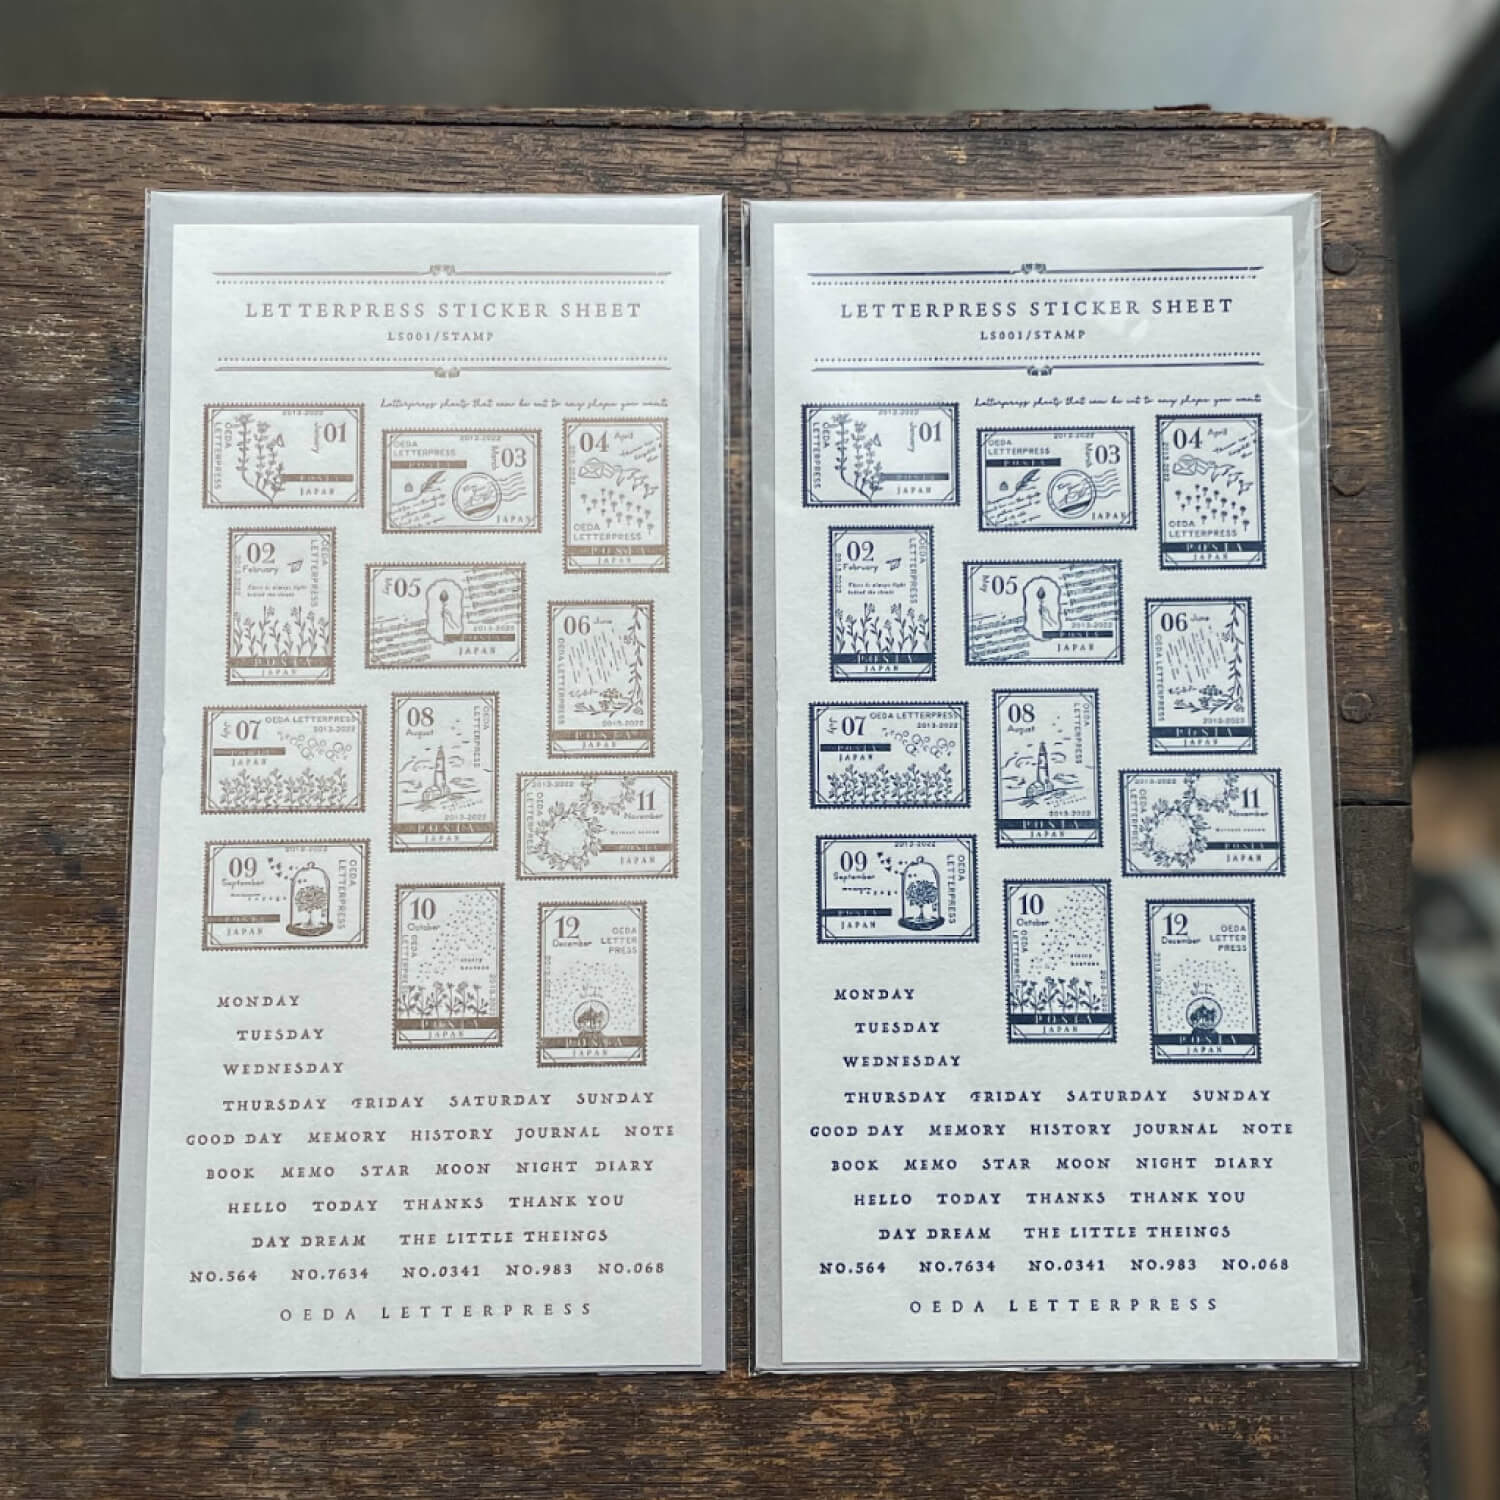 LETTERPRESS STICKER SHEET
LS001/STAMP
Letterpress sheets that can be cut to any shape you want
2013-2022
January 01
OEDA LETTERPRESS
POSTA
JAPAN
OEDA LETTERPRESS
2013-2022
March 03
POSTA
JAPAN
04 April
2013-2022
OEDA LETTERPRESS
POSTA
JAPAN
02 February
OEDA LETTERPRESS
2013-2022
There is always light
behind the clouds
POSTA
JAPAN
May 05
2013-2022
POSTA
JAPAN
06 June
OEDA LETTERPRESS
2013-2022
POSTA
JAPAN
July 07
OEDA LETTERPRESS
2013-2022
POSTA
JAPAN
08 August
OEDA LETTERPRESS
2013-2022
POSTA
JAPAN
2013-2022
OEDA LETTERPRESS
11 November
POSTA
JAPAN
09 September
2013-2022
OEDA LETTERPRESS
POSTA
JAPAN
10 October
OEDA LETTERPRESS
starry
heavens
2013-2022
POSTA
JAPAN
12 December
OEDA
LETTER
PRESS
2013-2022
POSTA
JAPAN
MONDAY
TUESDAY
WEDNESDAY
THURSDAY FRIDAY SATURDAY SUNDAY
GOOD DAY MEMORY HISTORY JOURNAL NOTE
BOOK MEMO STAR MOON NIGHT DIARY
HELLO TODAY THANKS THANK YOU
DAY DREAM THE LITTLE THEINGS
NO.564 NO.7634 NO.0341 NO.983 NO.068
OEDA LETTERPRESS
LETTERPRESS STICKER SHEET
LS001/STAMP
Letterpress sheets that can be cut to any shape you want
2013-2022
January 01
OEDA LETTERPRESS
POSTA
JAPAN
OEDA LETTERPRESS
2013-2022
March 03
POSTA
JAPAN
04 April
2013-2022
OEDA LETTERPRESS
POSTA
JAPAN
02 February
OEDA LETTERPRESS
2013-2022
There is always light
behind the clouds
POSTA
JAPAN
May 05
2013-2022
POSTA
JAPAN
06 June
OEDA LETTERPRESS
2013-2022
POSTA
JAPAN
July 07
OEDA LETTERPRESS
2013-2022
POSTA
JAPAN
08 August
OEDA LETTERPRESS
2013-2022
POSTA
JAPAN
2013-2022
OEDA LETTERPRESS
11 November
POSTA
JAPAN
09 September
2013-2022
OEDA LETTERPRESS
POSTA
JAPAN
10 October
OEDA LETTERPRESS
starry
heavens
2013-2022
POSTA
JAPAN
12 December
OEDA
LETTER
PRESS
2013-2022
POSTA
JAPAN
MONDAY
TUESDAY
WEDNESDAY
THURSDAY FRIDAY SATURDAY SUNDAY
GOOD DAY MEMORY HISTORY JOURNAL NOTE
BOOK MEMO STAR MOON NIGHT DIARY
HELLO TODAY THANKS THANK YOU
DAY DREAM THE LITTLE THEINGS
NO.564 NO.7634 NO.0341 NO.983 NO.068
OEDA LETTERPRESS